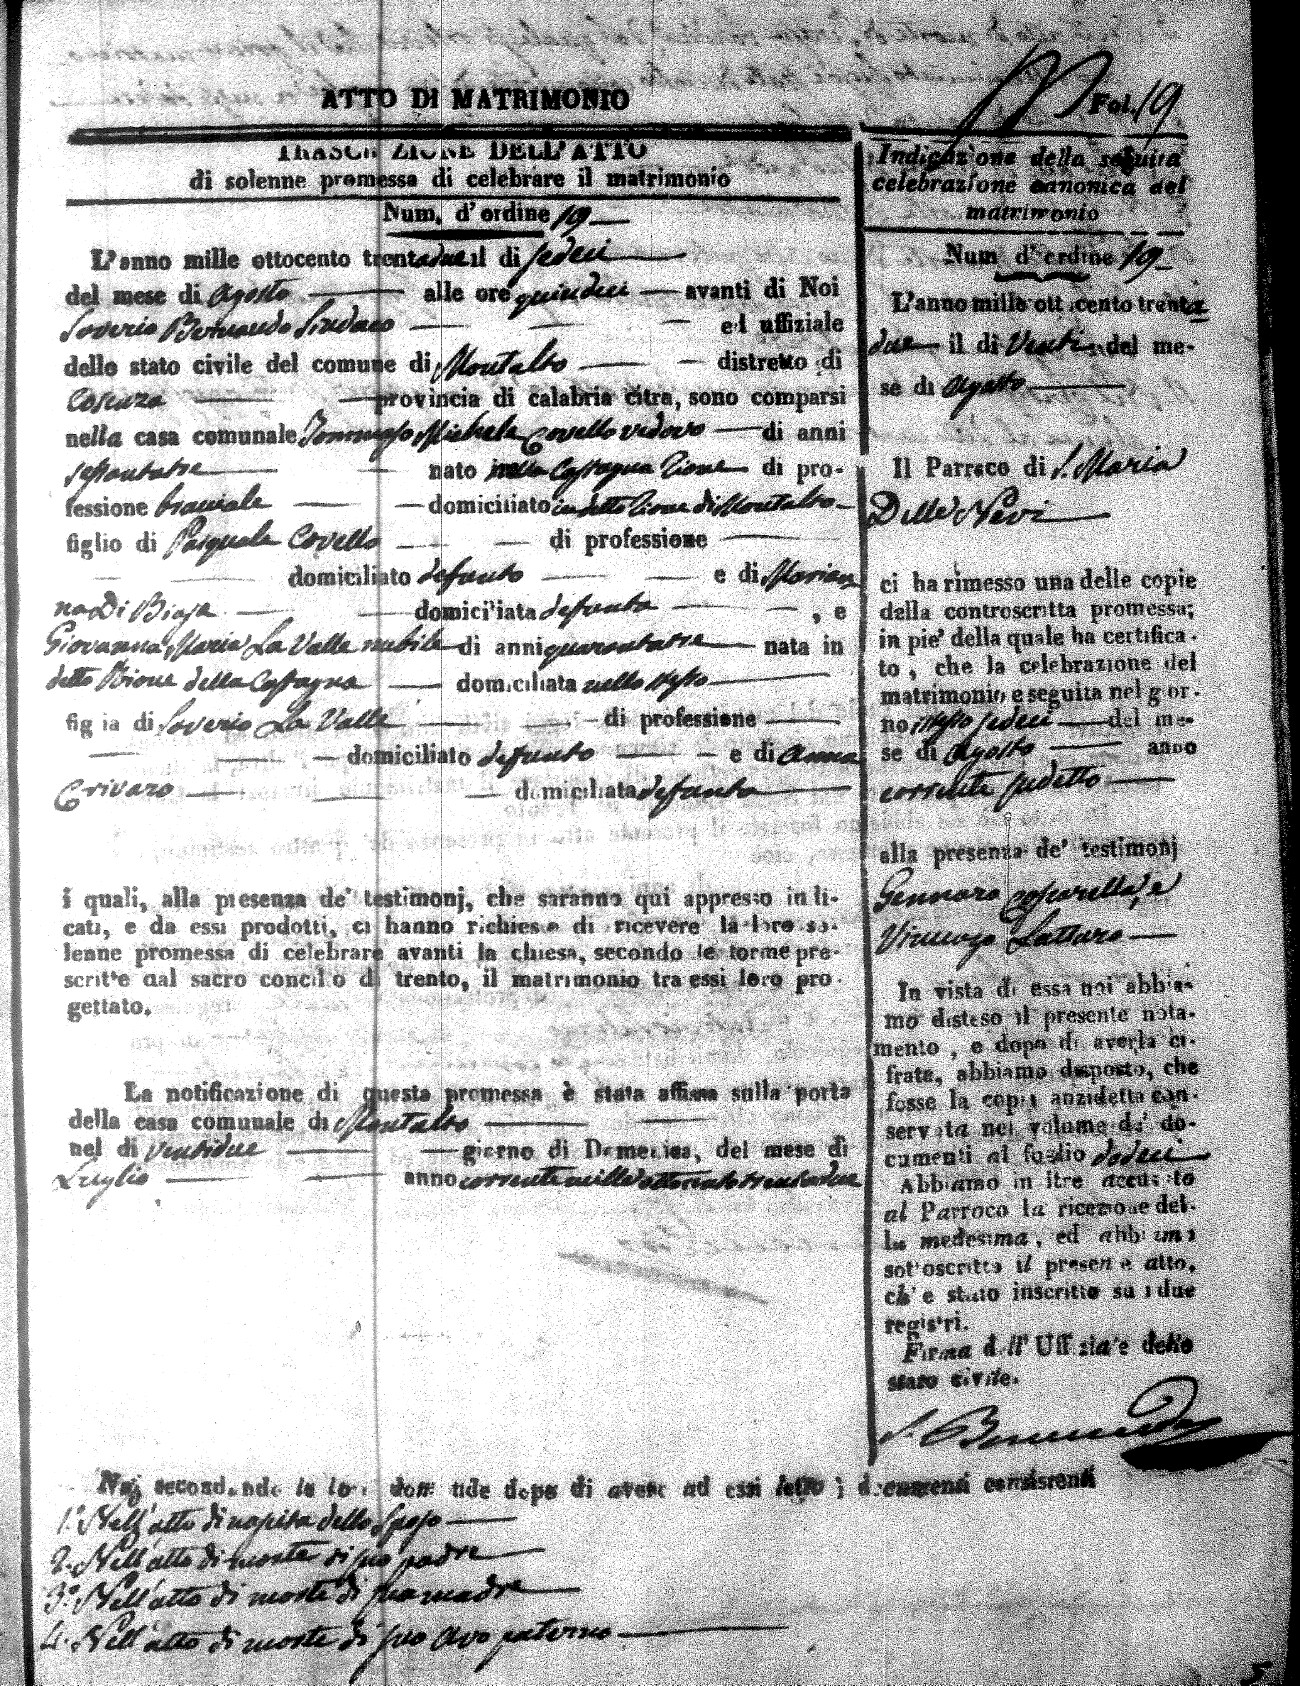 Fol. 19
ATTO DI MATRIMONIO
TRASCRIZIONE DELL'ATTO
di solenne promessa di celebrare il matrimonio
Num. d'ordine 19
L'anno mille ottocento trentadue il di sedeci
del mese di Agosto alle ore quindeci avanti di Noi
Saverio Bernaudo Sindaco ed uffiziale
dello stato civile del comune di Montalto distretto di
Cosenza provincia di calabria citra, sono comparsi
nella casa comunale Tommaso Michele Covello vedovo di anni
sessantatre nato nella Castagna Rione di pro-
fessione bracciale domiciliato in detto Rione di Montalto
figlio di Pasquale Covello di professione
domiciliato defunto e di Marian
na Di Biase domiciliata defunta , e
Giovanna Maria La Valle nubile di anni quarantatre nata in
detto Rione della Castagna domiciliata nello stesso
figlia di Saverio La Valle di professione
domiciliato defunto e di Anna
Crivaro domiciliata defunta
i quali, alla presenza de' testimonj, che saranno qui appresso indi-
cati, e da essi prodotti, ci hanno richiesto di ricevere la loro so-
lenne promessa di celebrare avanti la chiesa, secondo le forme pre-
scritte dal sacro concilio di trento, il matrimonio tra essi loro pro-
gettato.
La notificazione di questa promessa è stata affissa sulla porta
della casa comunale di Montalto
nel di ventidue giorno di Domenica, del mese di
Luglio anno corrente mille ottocento trentadue
Noi secondando la loro domanda dopo di avere ad essi letto i documenti consistenti
1.° Nell'atto di nascita dello sposo
2. Nell'atto di morte di suo padre
3.° Nell'atto di morte di sua madre
4. Nell'atto di morte di suo avo paterno
Indicazione della seguita
celebrazione canonica del
matrimonio
Num d'ordine 19
L'anno mille ottocento trenta
due il di Venti del me-
se di Agosto
Il Parroco di S. Maria
Delle Nevi
ci ha rimesso una delle copie
della controscritta promessa;
in pie' della quale ha certifica-
to, che la celebrazione del
matrimonio e seguita nel gior-
no stesso sedeci del me-
se di Agosto anno
corrente sudetto
alla presenza de' testimonj
Gennaro Caparella, e
Vincenzo Lattaro
In vista di essa noi abbia-
mo disteso il presente nota-
mento, e dopo di averla ci-
frata, abbiamo disposto, che
fosse la copia anzidetta con-
servata nel volume de' do-
cumenti al foglio dodeci
Abbiamo in oltre accusato
al Parroco la ricezione del-
la medesima, ed abbiamo
sottoscritto il presente atto,
ch'e stato inscritto su i due
registri.
Firma dell'Uffiziale dello
stato civile.
S. Bernaudo